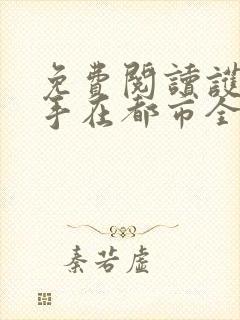 免費閱讀護
手在都市全
秦若虛